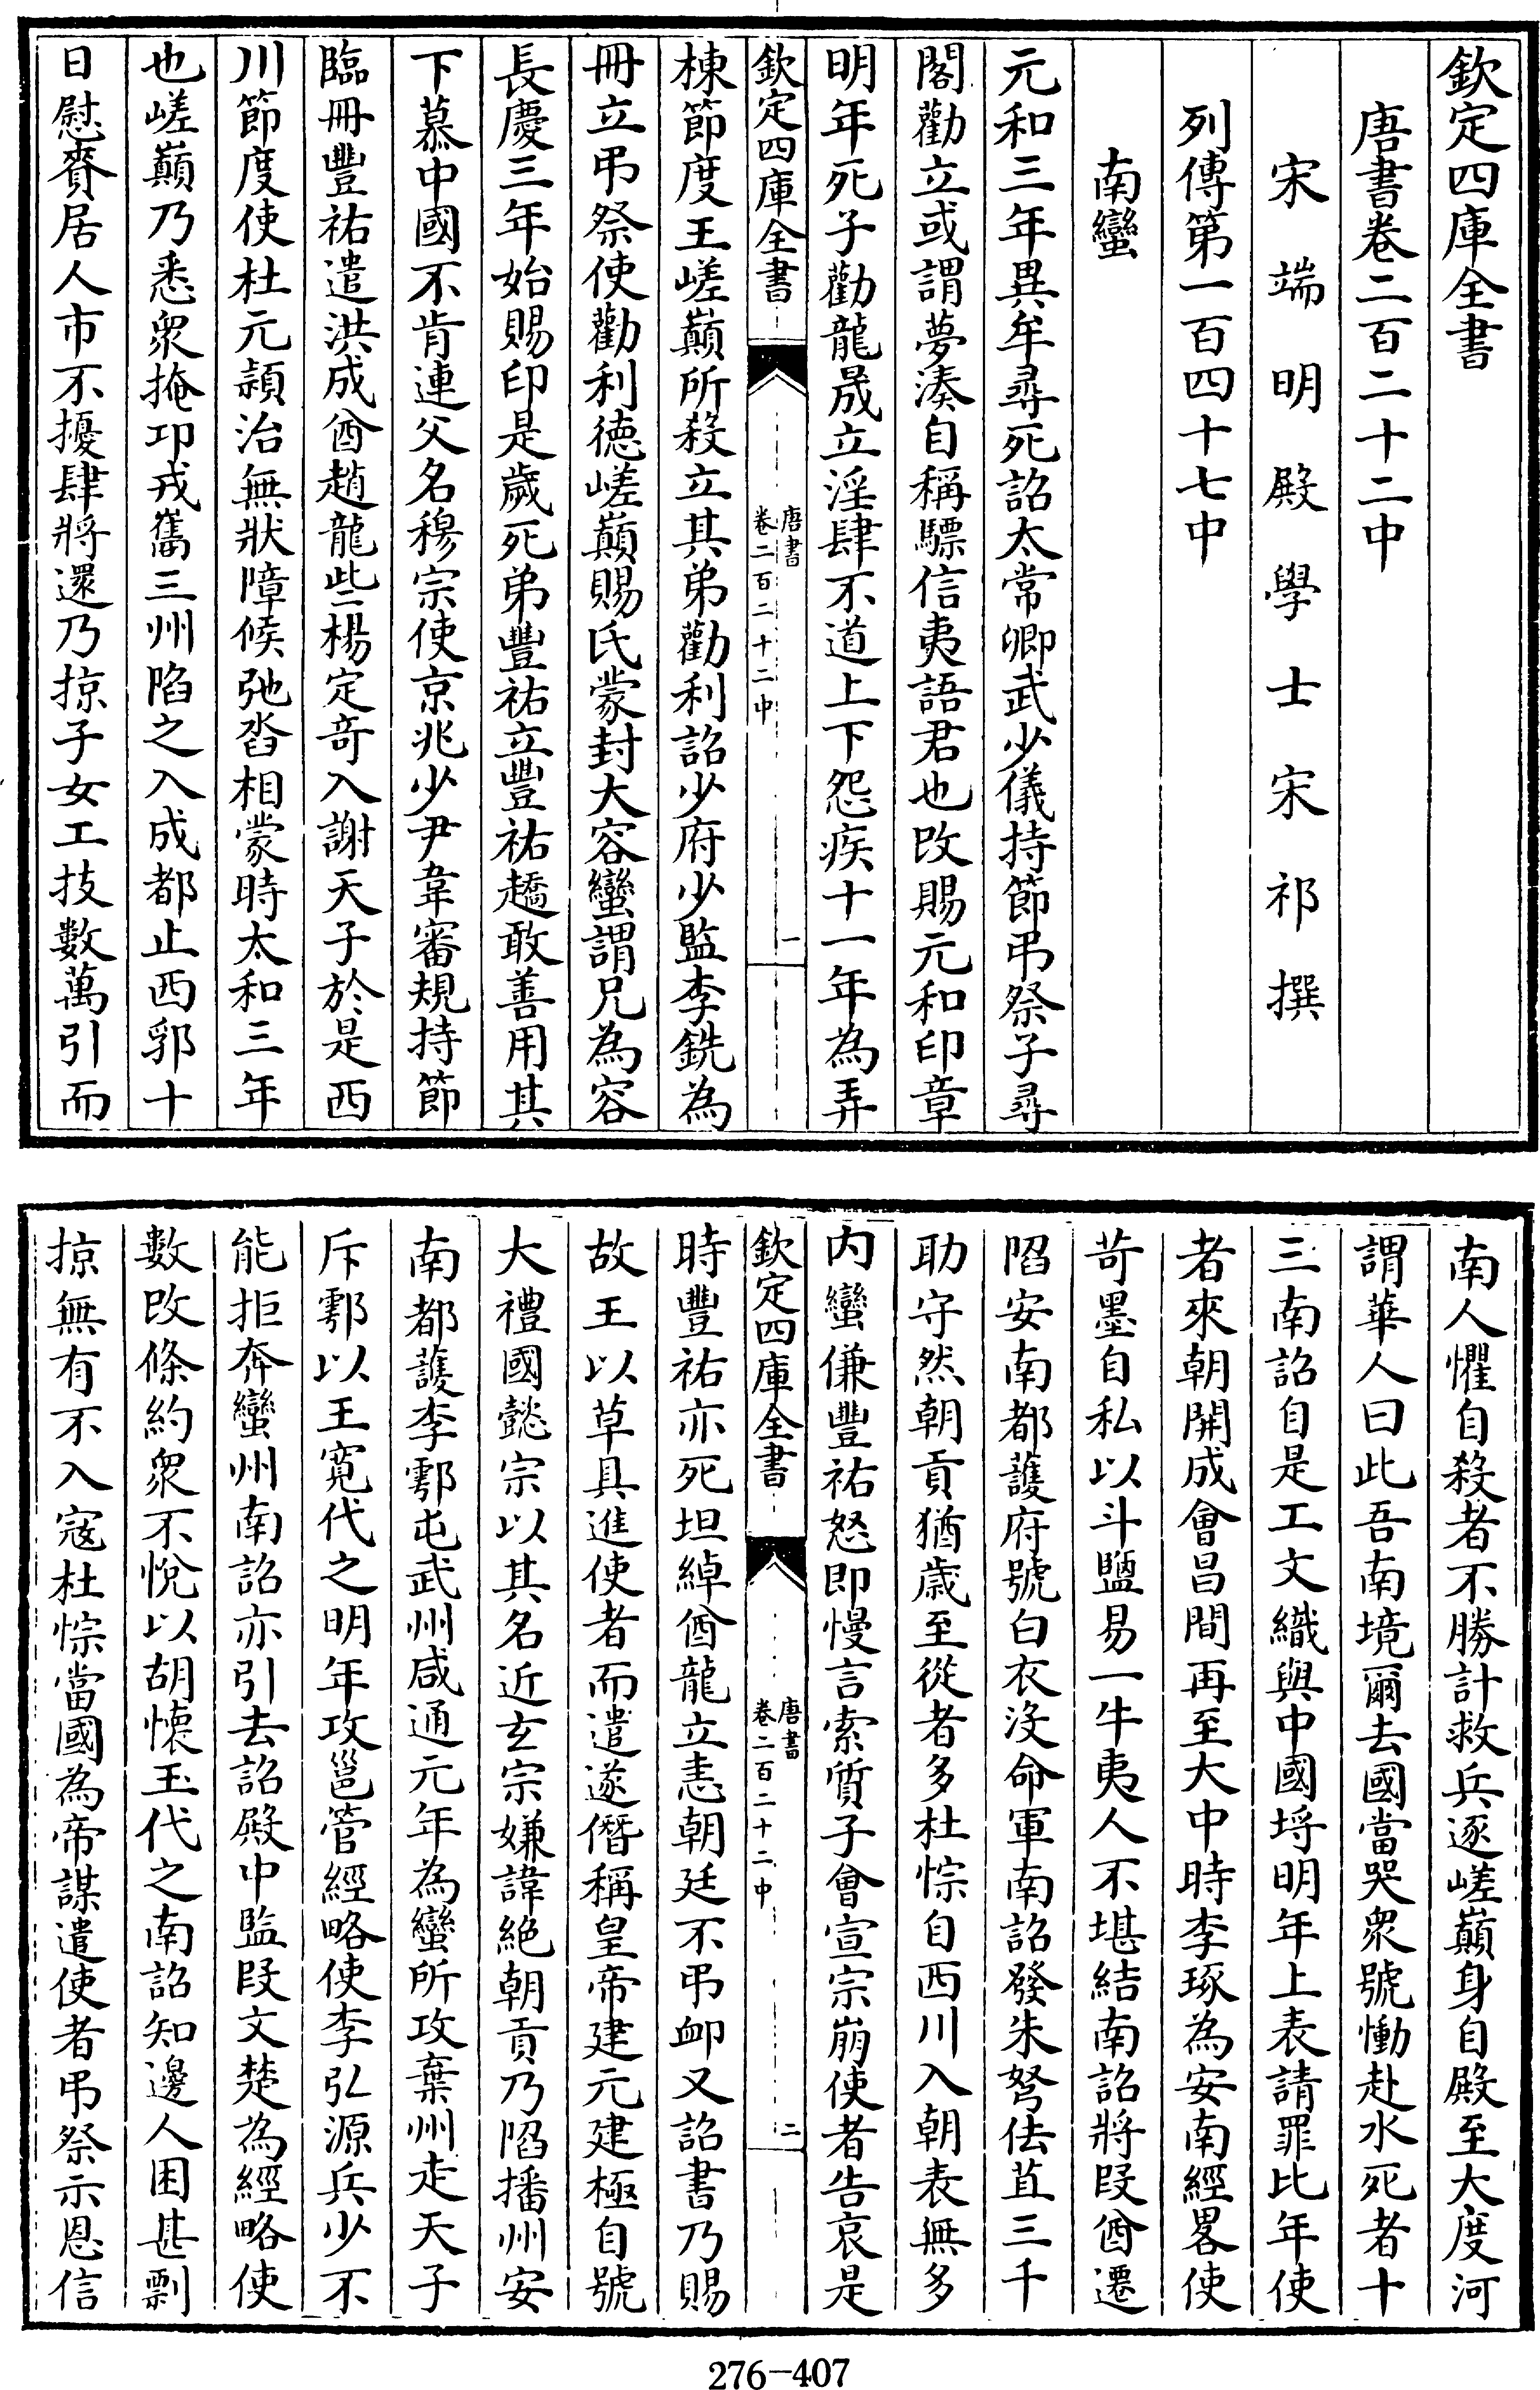 欽定四庫全書
唐書卷二百二十二中
宋端明殿學士宋祁撰
列傳第一百四十七中
南蠻
元和三年異牟尋死詔太常卿武少儀持節弔祭子尋
閣勸立或謂夢湊自稱驃信夷語君也改賜元和印章
明年死子勸龍晟立淫肆不道上下怨疾十一年為弄
欽定四庫全書
唐書
卷二百二十二中
一
棟節度王嵯巔所殺立其弟勸利詔少府少監李銑為
冊立弔祭使勸利德嵯巔賜氏蒙封大容蠻謂兄為容
長慶三年始賜印是歲死弟豐祐立豐祐趫敢善用其
下慕中國不肯連父名穆宗使京兆少尹韋審規持節
臨冊豐祐遣洪成酋趙龍些楊定奇入謝天子於是西
川節度使杜元穎治無狀障候弛沓相蒙時太和三年
也嵯巔乃悉衆掩卭戎巂三州陷之入成都止西郛十
日慰賚居人市不擾肆將還乃掠子女工技數萬引而
南人懼自殺者不勝計救兵逐嵯巔身自殿至大度河
謂華人曰此吾南境爾去國當哭衆號慟赴水死者十
三南詔自是工文織與中國埒明年上表請罪比年使
者來朝開成會昌間再至大中時李琢為安南經畧使
苛墨自私以斗鹽易一牛夷人不堪結南詔將段酋遷
陷安南都護府號白衣沒命軍南詔發朱弩佉苴三千
助守然朝貢猶歲至從者多杜悰自西川入朝表無多
內蠻傔豐祐怒即慢言索質子會宣宗崩使者告哀是
欽定四庫全書
唐書
卷二百二十二中
二
時豐祐亦死坦綽酋龍立恚朝廷不弔卹又詔書乃賜
故王以草具進使者而遣遂僭稱皇帝建元建極自號
大禮國懿宗以其名近玄宗嫌諱絶朝貢乃陷播州安
南都護李鄠屯武州咸通元年為蠻所攻棄州走天子
斥鄠以王寬代之明年攻邕管經略使李弘源兵少不
能拒奔蠻州南詔亦引去詔殿中監段文楚為經略使
數改條約衆不悅以胡懷玉代之南詔知邊人困甚剽
掠無有不入寇杜悰當國為帝謀遣使者弔祭示恩信
276-407